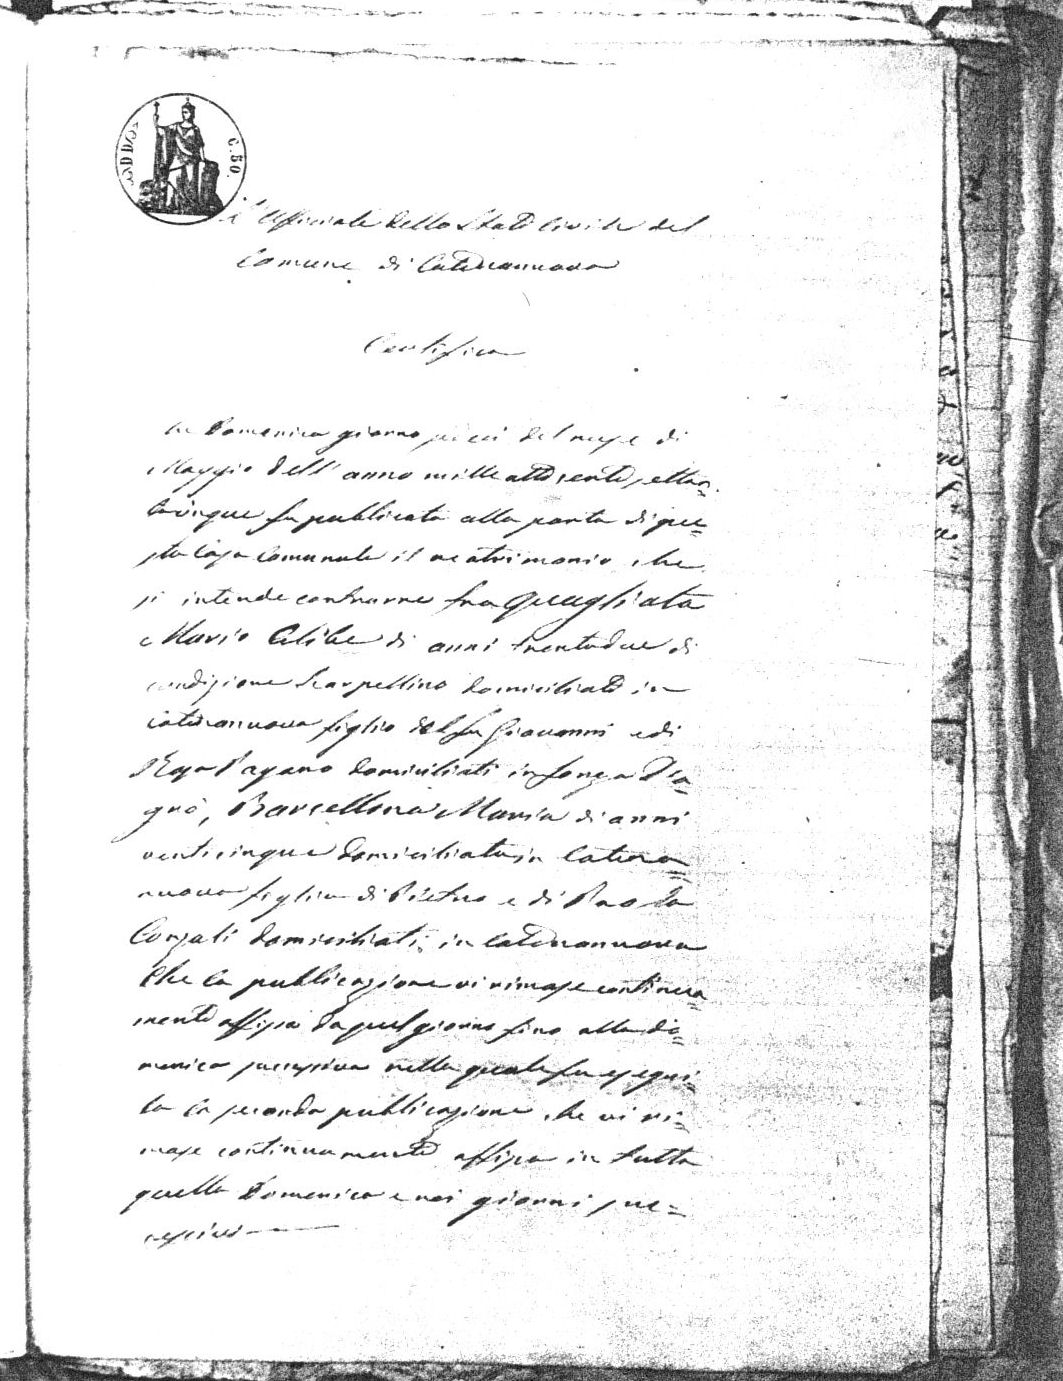 C. 50.
L'Uffiziale dello Stato Civile del
Comune di Catenanuova
Certifica
Che Domenica giorno sedici del mese di
Maggio dell'anno mille ottocento settan=
cinque fu publicata alla porta di que=
sta Casa Comunale il matrimonio che
si intende contrarre fra Quagliata
Mario Celibe di anni trentadue di
condizione Scarpellino domiciliato in
Catenanuova figlio del fu Giovanni e di
Rosa Pagano domiciliati in
Barcellona Maria di anni
venticinque domiciliata in Catena=
nuova figlia di Pietro e di Paola
domiciliati in Catenanuova
Che la publicazione vi rimase continua=
mente affissa da quel giorno fino alla do=
menica successiva nella quale fu esegui=
ta la seconda publicazione che vi ri=
mase continuamente affissa in tutta
quella Domenica e nei giorni suc=
cessivi